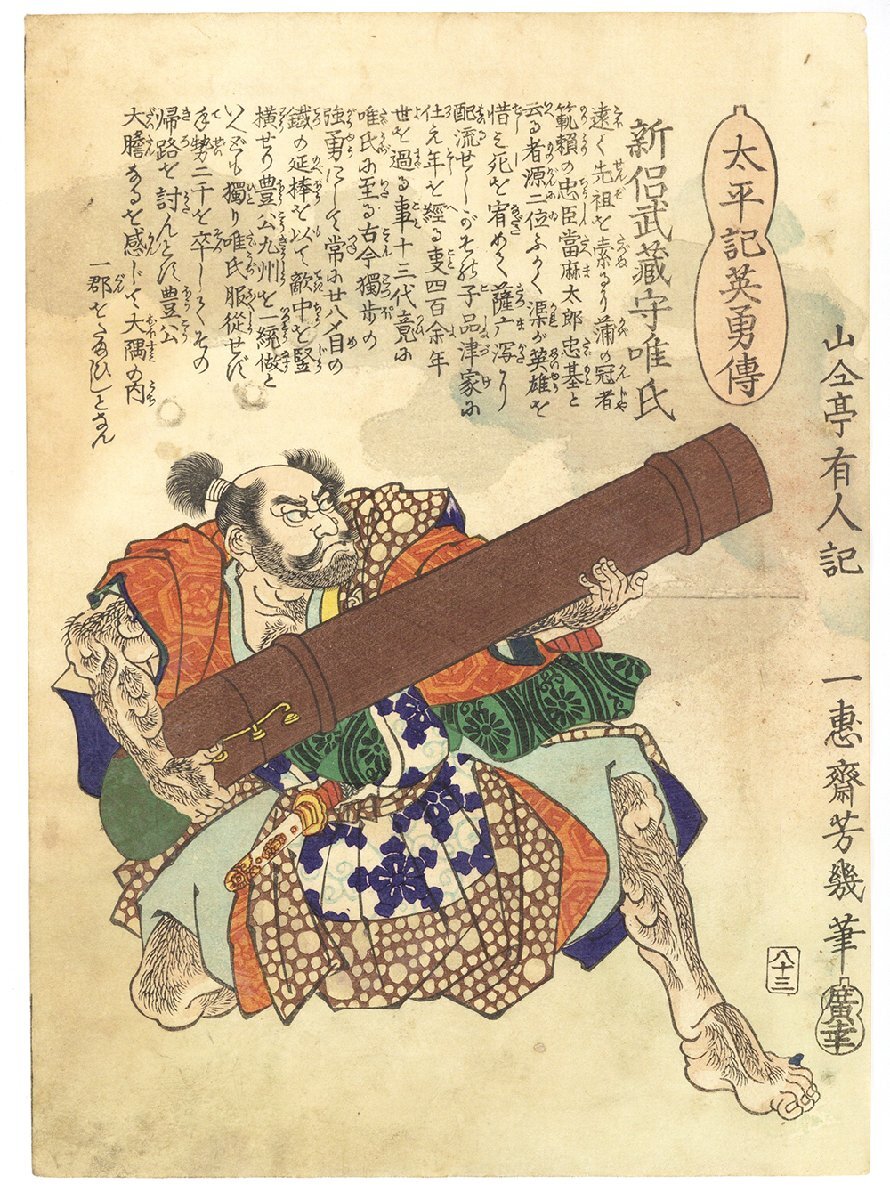 太平記英勇傳
山々亭有人記
一惠齋芳幾筆
八十三
廣幸
新侶武藏守唯氏
遠く先祖を素るに蒲の冠者
範頼の忠臣當麻太郎忠基と
云る者源二位ふかく渠が英雄を
惜ミ死を宥めて薩广泻に
配流せしが其子品津家に
仕え年を經る事四百余年
世を過る事十三代竟に
唯氏に至る古今獨歩の
強勇にして常に廿八〆目の
鐵の延棒を以て敵中を竪
横せり豊公九州を一統做と
いへども獨り唯氏服從せず
手勢二千を卒してその
帰路を討んとす豊公
大膽なるを感じて大隅の内
一郡を